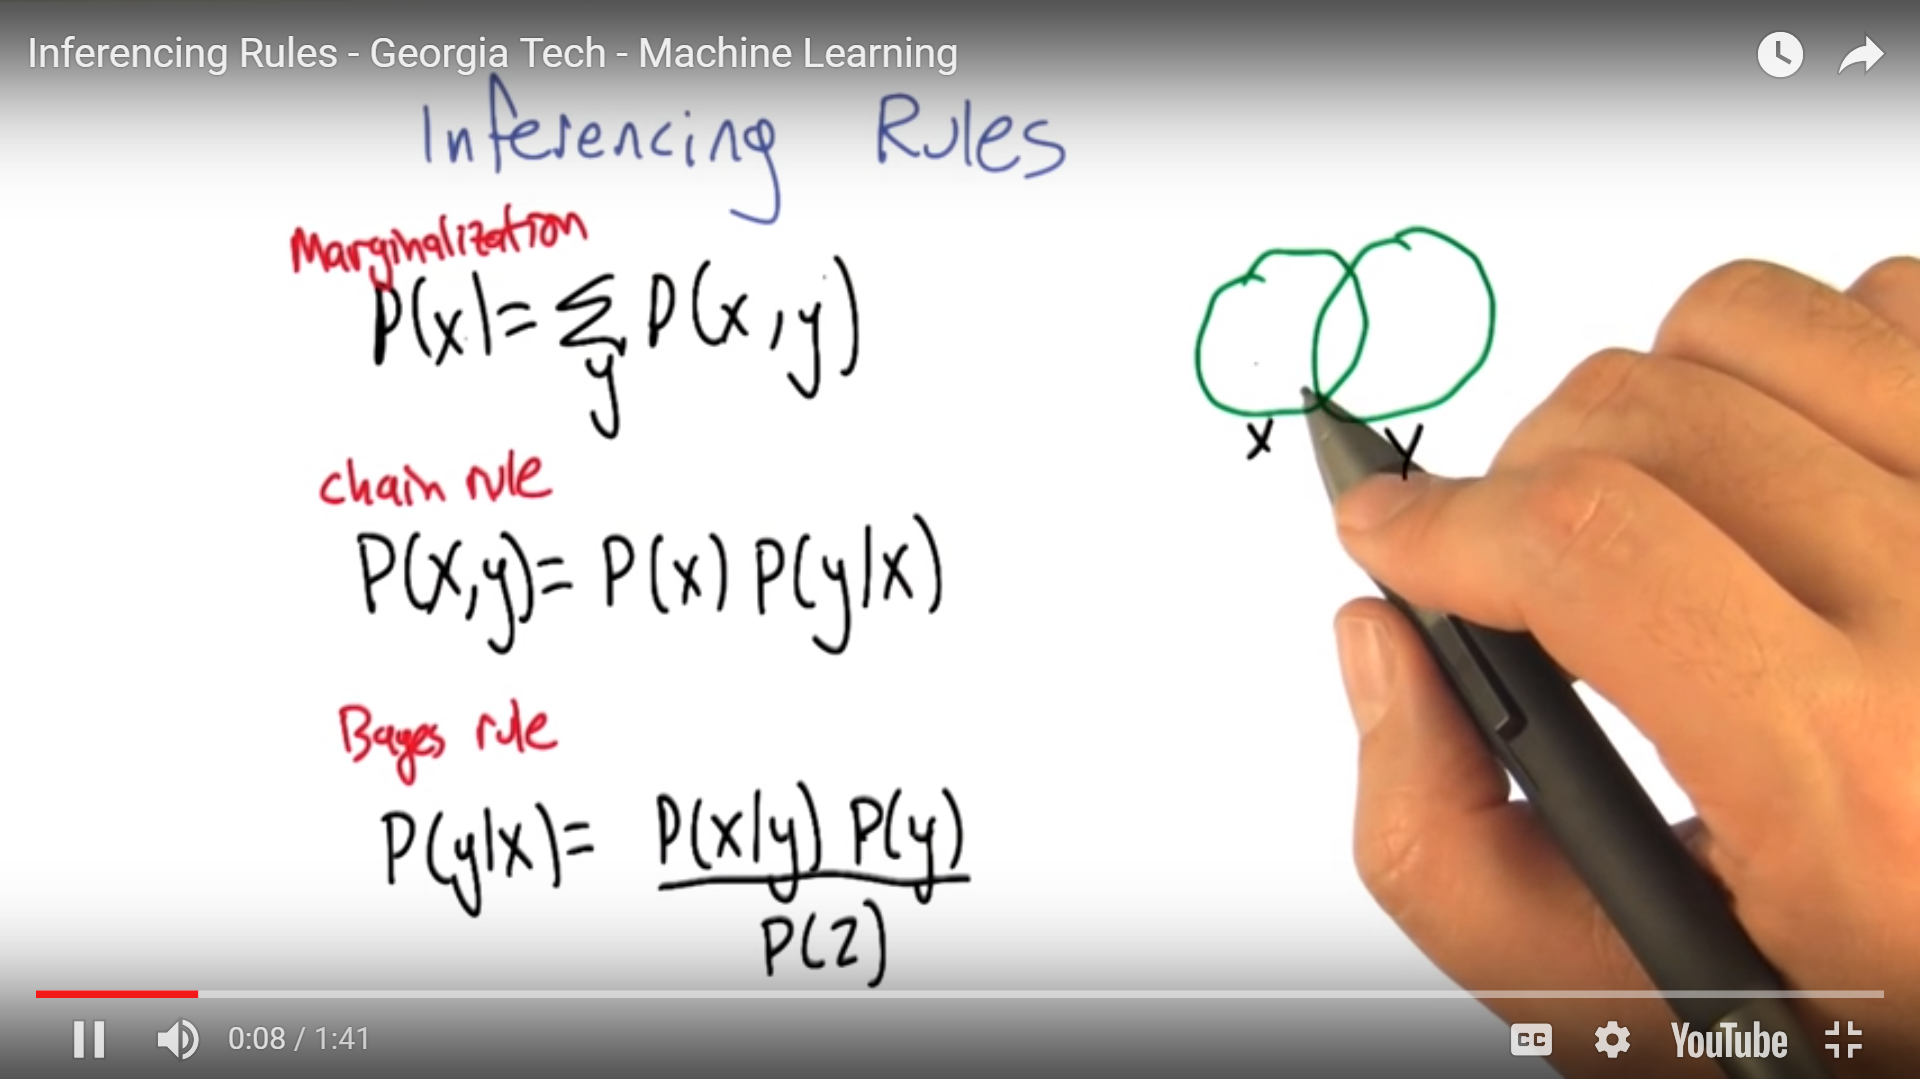 Inferencing Rules - Georgia Tech - Machine Learning
Inferencing Rules
Marginalization
P(x)= Σ P(x,y)
y
chain rule
P(x,y)= P(x) P(y|x)
Bayes rule
P(y|x)= P(x|y) P(y)
P(z)
X Y
0:08 / 1:41
CC
YouTube